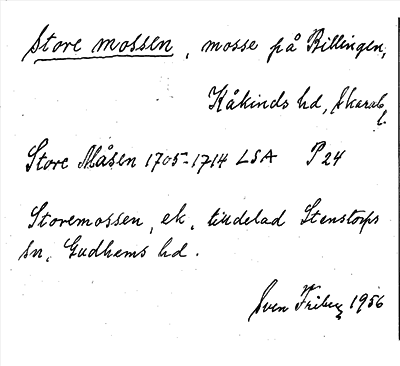 Store mossen, mosse på Billingen,
Kåkinds hd, Skarab.
l.
Store Måsen 1705-1714 LSA P 24
Storemossen, ek, tildelad Stenstorps
sn, Gudhems hd.
Sven Friberg 1956